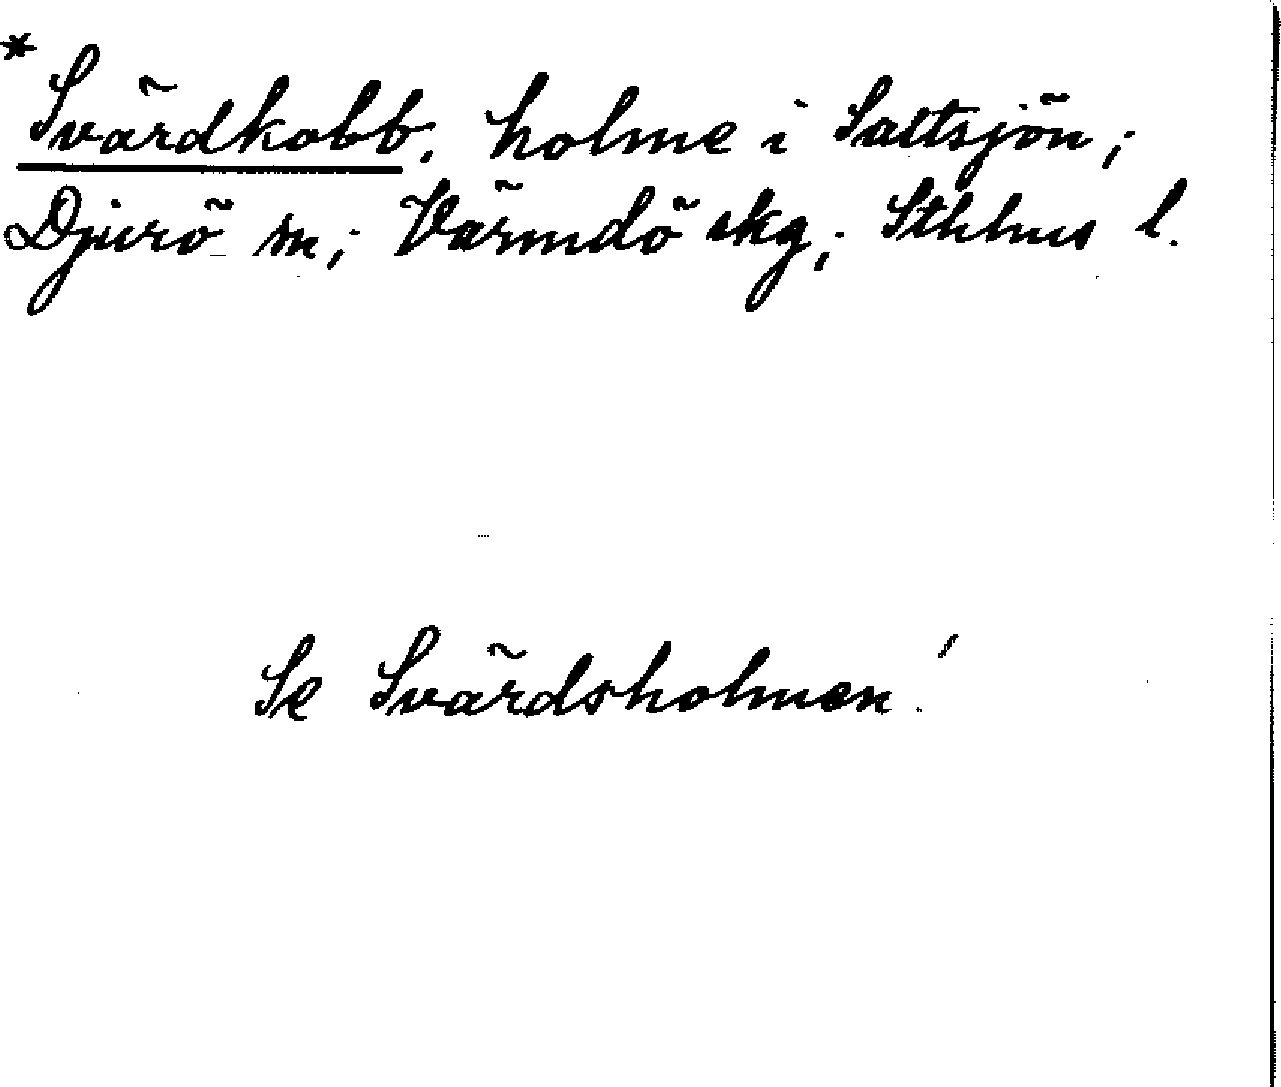 * Svärdkobb, holme i Saltsjön;
Djurö sn; Värmdö skg; Sthlms l.
Se Svärdsholmen!